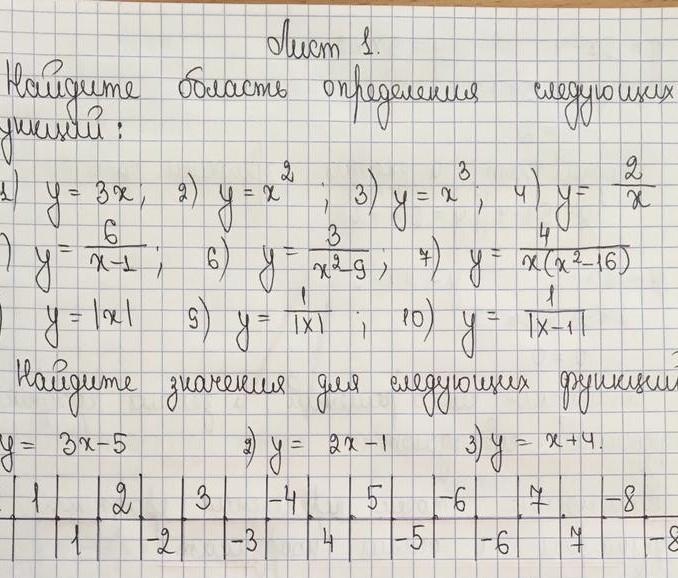 Лист 1.
Найдите область определения следующих
ункций:
1) y = 3x; 2) y = x²; 3) y = x³; 4) y = 2/x
) y = 6/(x-1); 6) y = 3/(x²-9); 7) y = 4/(x(x²-16))
) y = |x| 9) y = 1/|x|; 10) y = 1/|x-1|
Найдите значения для следующих функций
y = 3x-5 2) y = 2x-1 3) y = x+4.
1 2 3 -4 5 -6 7 -8
1 -2 -3 4 -5 -6 7 -8